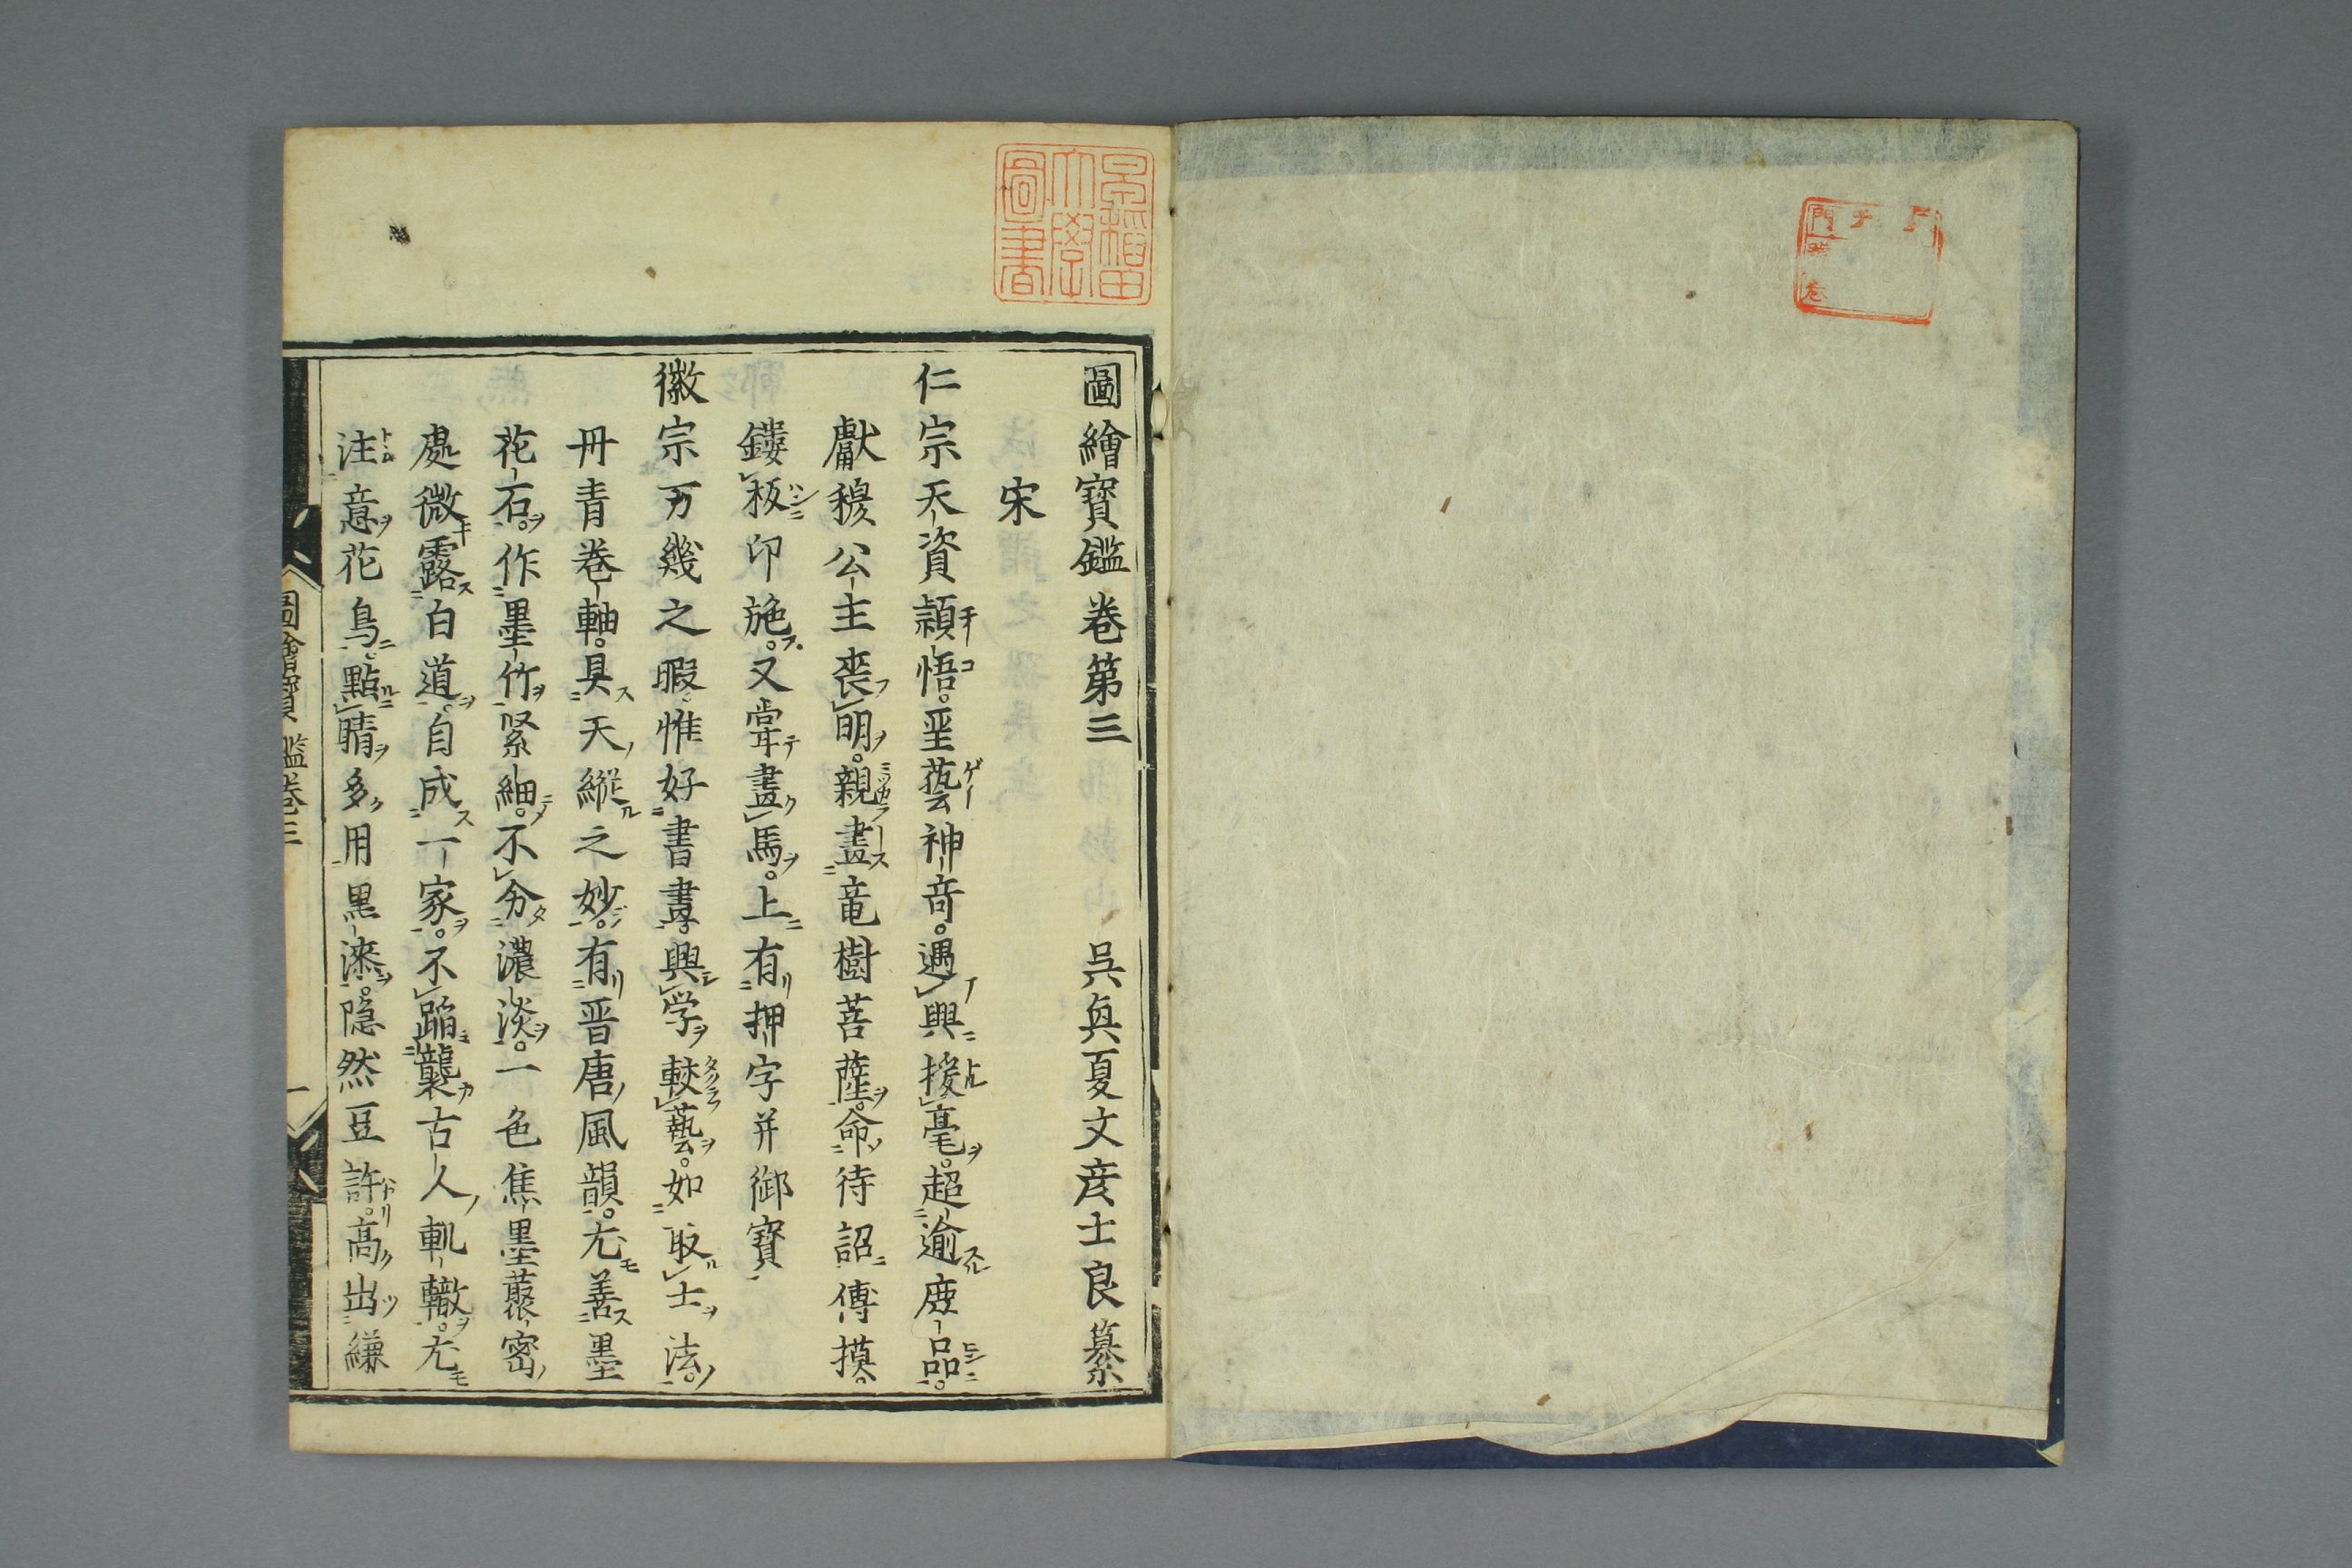 圖繪寳鑑卷第三
吳興夏文彦士良纂
宋
仁宗天資穎悟。聖藝神竒。遇興援毫。超逾庶品。
獻穆公主喪明。親畫竜樹菩薩。命待詔傳摸。
鏤板印施。又甞畫馬。上有押字并御寳
徽宗万幾之暇惟好書畫。興学較藝。如取士法。
丹青卷軸。具天縱之妙。有晋唐風韻。尤善墨
花石。作墨竹緊細。不分濃淡。一色焦墨叢密
處微露白道。自成一家。不蹈襲古人軌轍。尤
注意花鳥點睛多用黒漆。隠然豆許。高出縑
圖繪寳鑑卷三
一
早稲田大學圖書
門
号
卷